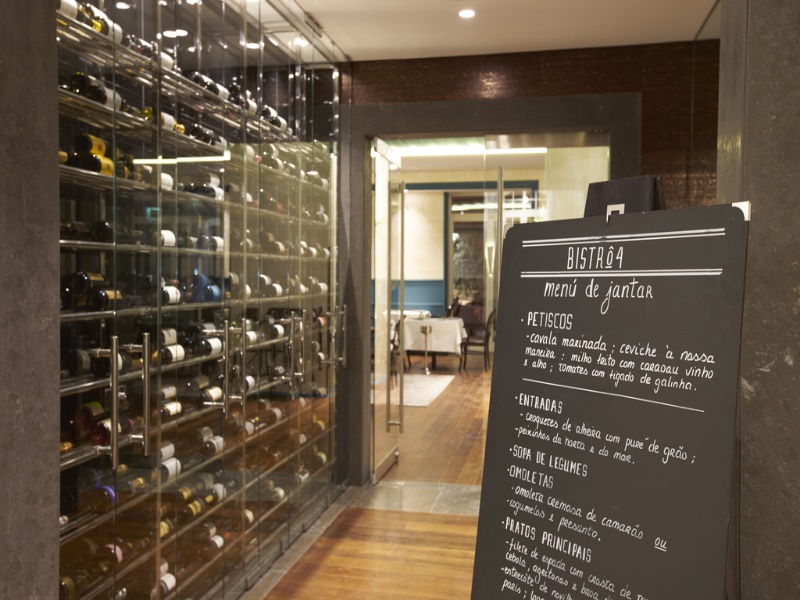 BISTRÔ4
menú de jantar
· PETISCOS
- cavala marinada ; ceviche à nossa
maneira ; milho frito com carapau vinho
e alho ; tomates com fígado de galinha.
· ENTRADAS
- croquetes de alheira com puré de grão ;
- peixinhos da horta e do mar.
· SOPA DE LEGUMES
· OMOLETAS
- omoleta cremosa de camarão ou
cogumelos e presunto.
· PRATOS PRINCIPAIS
- filete de espada com crosta de
cebola, azeitonas e
- entrecôte de novilho
paris ;